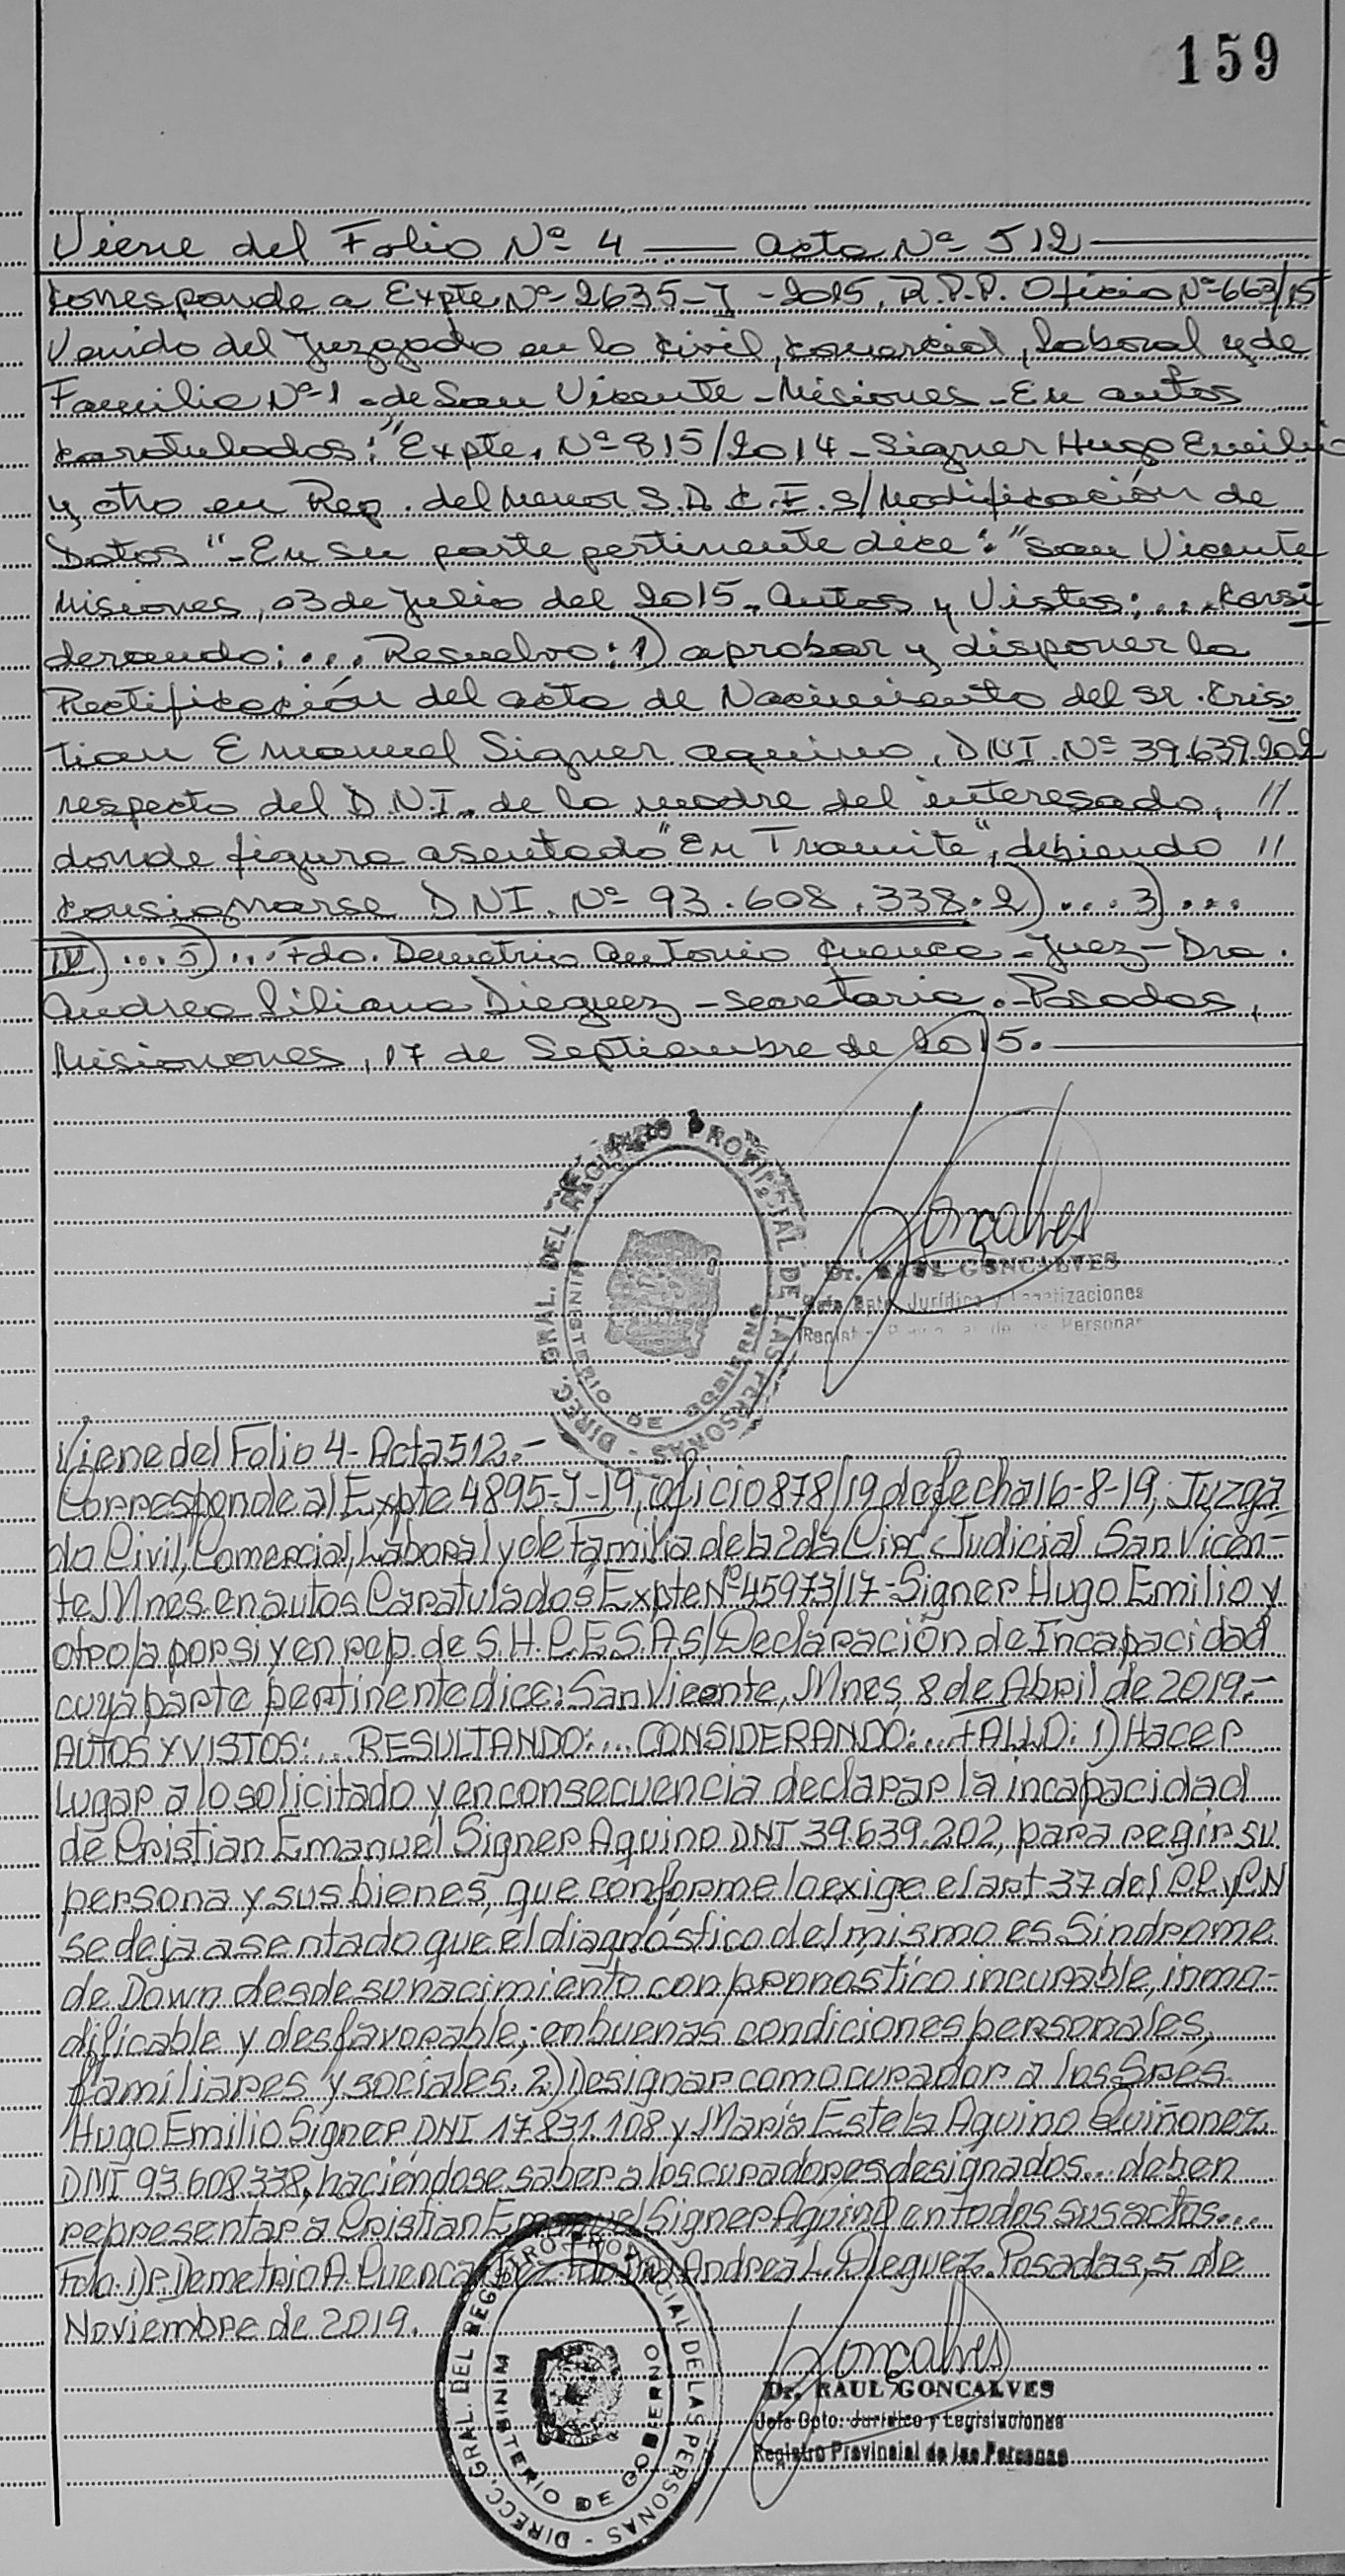 159
Viene del Folio Nº 4 — acta Nº 512
Corresponde a Expte Nº 2635-J-2015, R.P.P. Oficio Nº 663/15
Venido del Juzgado en lo Civil, Comercial, Laboral y de
Familia Nº 1 - de San Vicente - Misiones - En autos
Caratulados: "Expte. Nº 815/2014 - Signer Hugo Emilio
y otro en Rep. del menor S.A.C.E. s/ Modificación de
Datos" - En su parte pertinente dice: "San Vicente
Misiones, 03 de Julio del 2015. Autos y Vistos: ... Consi
derando: ... Resuelvo: 1) aprobar y disponer la
Rectificación del acta de Nacimiento del Sr. Cris
tian Emanuel Signer Aquino, DNI. Nº 39.639.202
respecto del D.N.I. de la madre del interesado, //
donde figura asentado "En Tramite", debiendo //
consignarse DNI. Nº 93.608.338. 2) .... 3) ...
IV) ... 5) ... Fdo. Demetrio Antonio Cuenca - Juez - Dra.
Andrea Liliana Dieguez - Secretaria. - Posadas,
Misionones, 17 de Septiembre de 2015. —
DIREC. GRAL. DEL REGISTRO PROVINCIAL DE LAS PERSONAS
MINISTERIO DE GOBIERNO
Goncalves
Dr. RAUL GONCALVES
Jefe Dpto. Jurídico y
Viene del Folio 4 - Acta 512.-
Corresponde al Expte 4895-J-19, oficio 878/19 de fecha 16-8-19, Juzga
do Civil, Comercial, Laboral y de Familia de la 2da Circ. Judicial San Vicen-
te Mnes. en autos Caratulados Expte Nº 45973/17 - Signer Hugo Emilio y
otro/a por si y en rep. de S.H.P.E.S.A s/ Declaración de Incapacidad
cuya parte pertinente dice: San Vicente, Mnes 8 de Abril de 2019.-
AUTOS Y VISTOS: ... RESULTANDO: ... CONSIDERANDO: ... FALLO: 1) Hacer
Lugar a lo solicitado y en consecuencia declarar la incapacidad
de Cristian Emanuel Signer Aquino DNI 39.639.202, para regir su
persona y sus bienes, que conforme lo exige el art 37 del CC y CN
se deja asentado que el diagnóstico del mismo es Síndrome
de Down desde su nacimiento con pronostico incurable, inmo-
dificable y desfavorable; en buenas condiciones personales,
familiares y sociales. 2) Designar como curador a los Sres.
Hugo Emilio Signer DNI 17.831.108 y María Estela Aquino Quiñonez
DNI 93.608.338, haciéndose saber a los curadores designados... deben
representar a Cristian Emanuel Signer Aquino en todos sus actos...
Fdo. Dr. Demetrio A. Cuenca Juez Fdo Dra. Andrea L. Dieguez. Posadas, 5 de
Noviembre de 2019.
DIRECC. GRAL. DEL REGISTRO PROVINCIAL DE LAS PERSONAS
MINISTERIO DE GOBIERNO
Goncalves
Dr. RAUL GONCALVES
Jefe Dpto. Jurídico y Legislaciones
Registro Provincial de las Personas